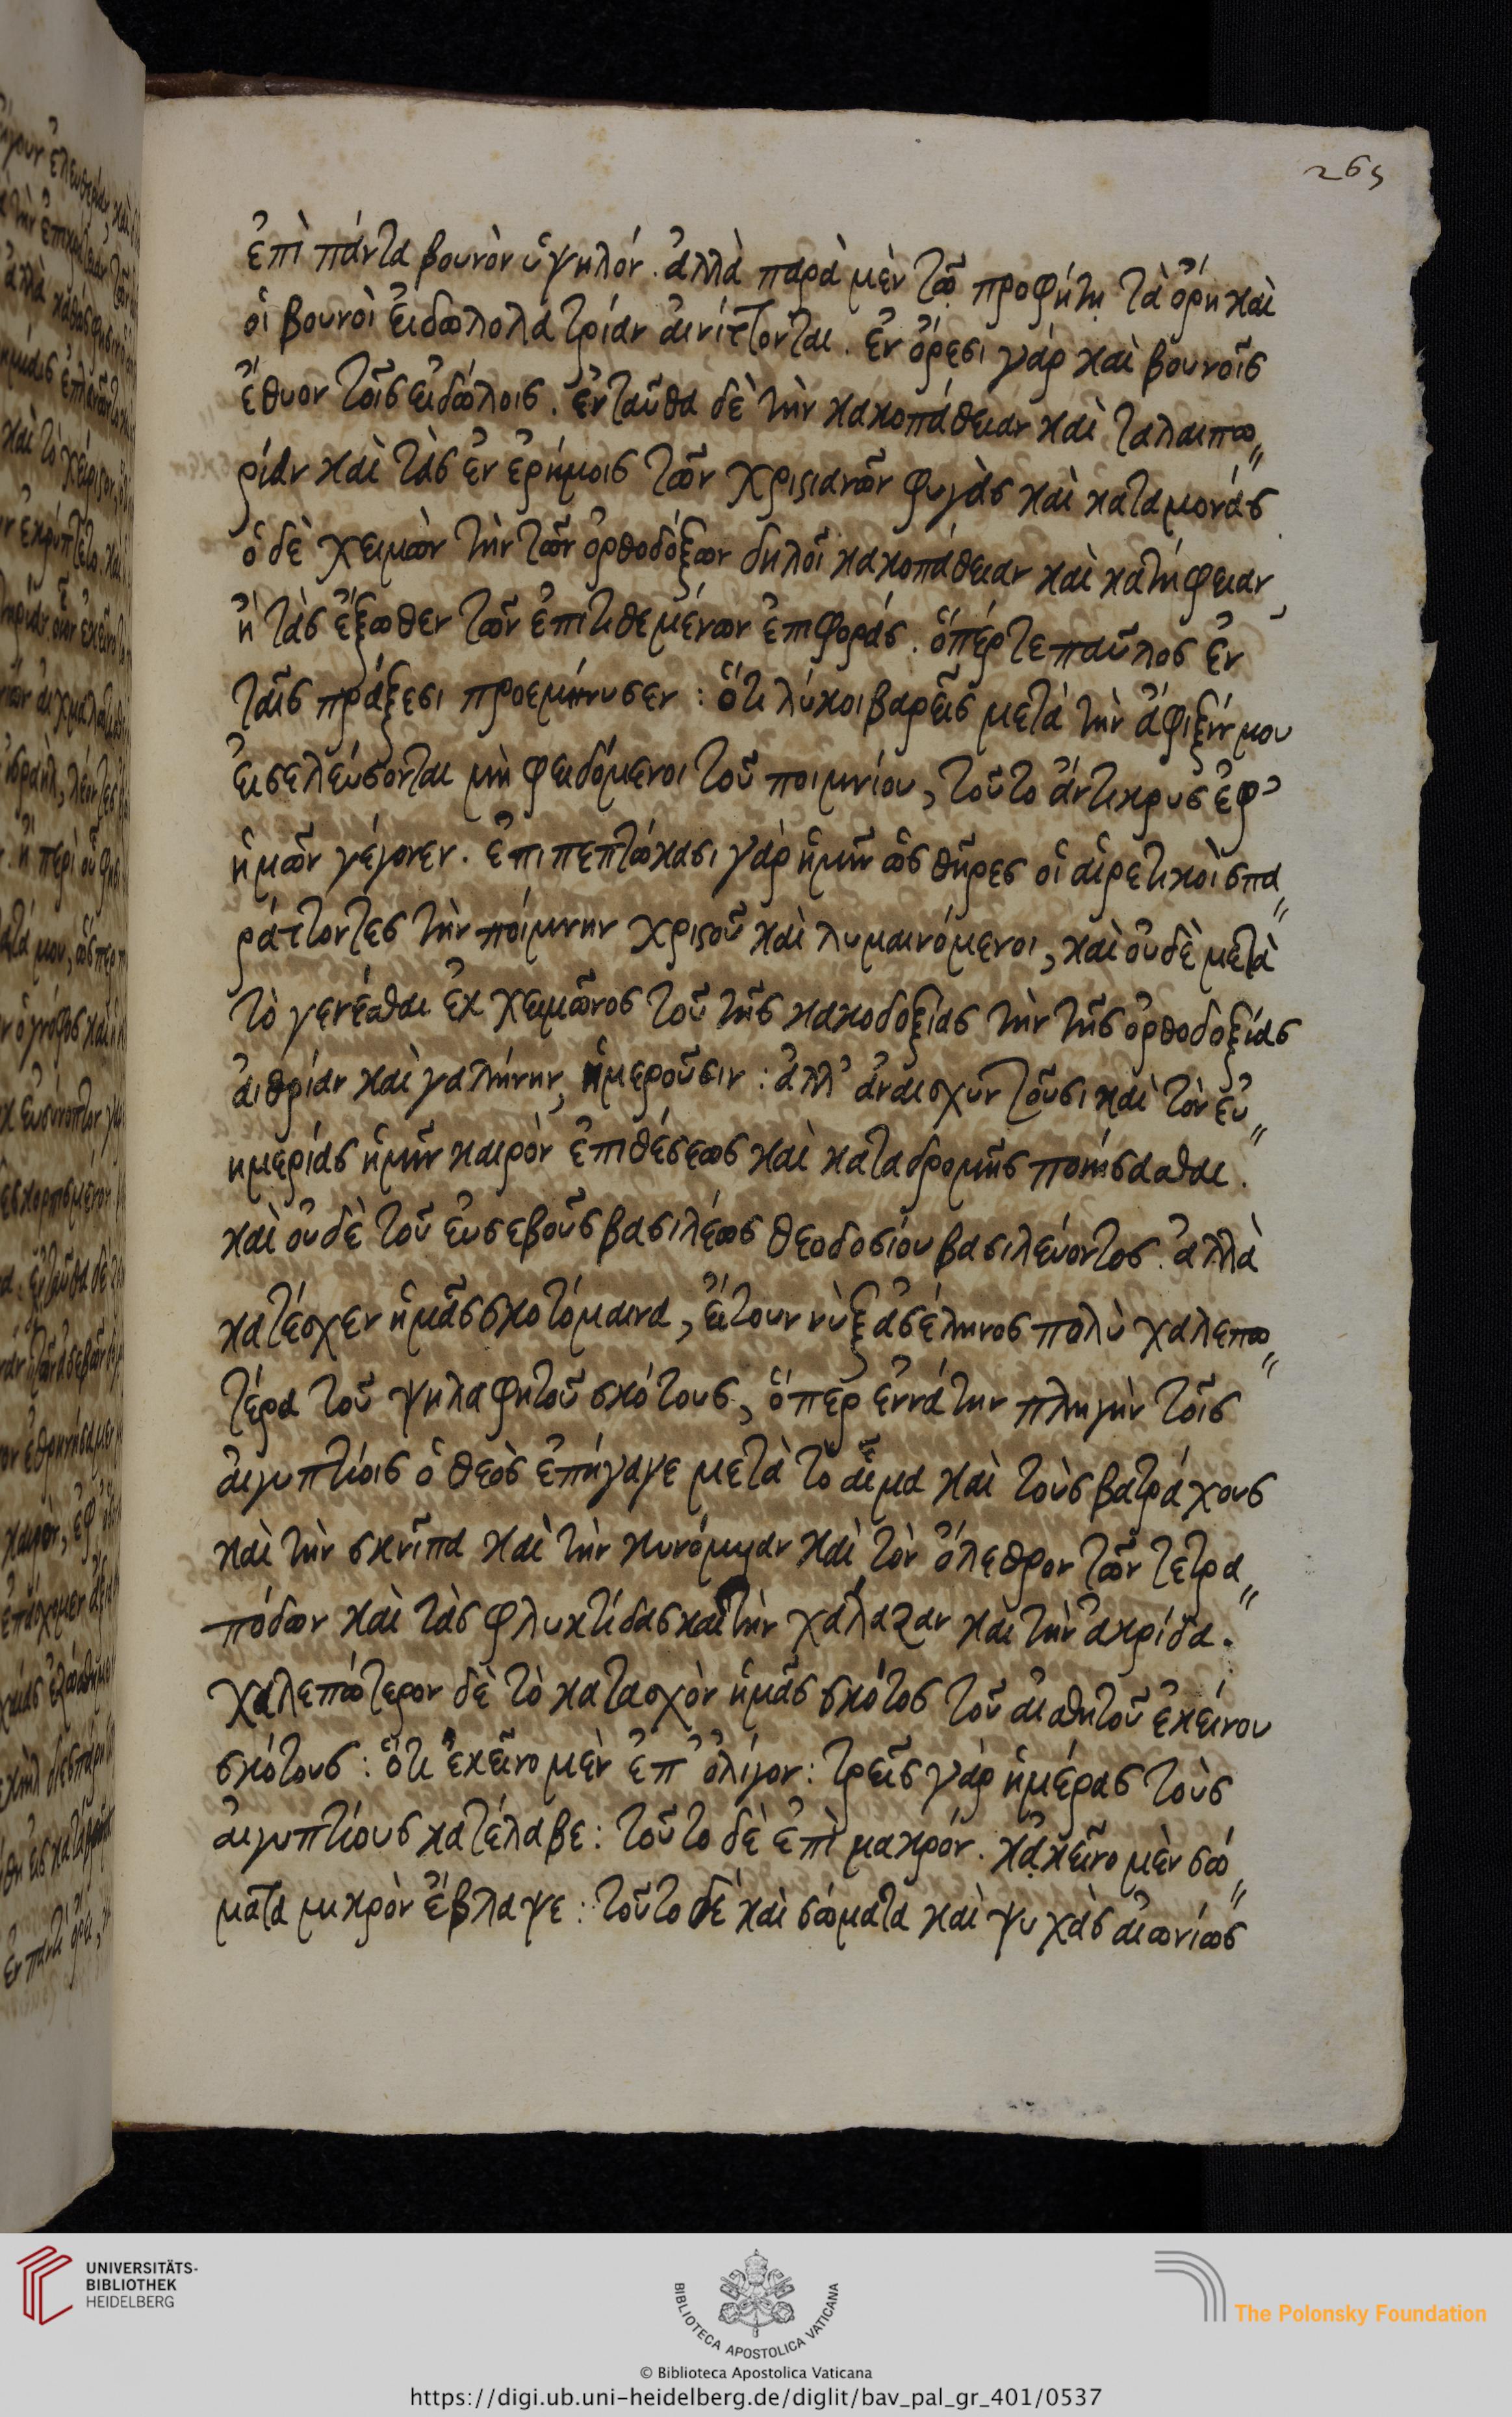 265
ἐπὶ πάντα βουνὸν ὑψηλόν. ἀλλὰ παρὰ μὲν τῷ προφήτῃ τὰ ὄρη καὶ
οἱ βουνοὶ εἰδωλολατρίαν αἰνίττονται. ἐν ὄρεσι γὰρ καὶ βουνοῖς
ἔθυον τοῖς εἰδώλοις. ἐνταῦθα δὲ τὴν κακοπάθειαν καὶ ταλαιπω„
ρίαν καὶ τὰς ἐν ἐρήμοις τῶν χριστιανῶν φυγὰς καὶ καταμονάς
ὁ δὲ χειμὼν τὴν τῶν ὀρθοδόξων δηλοῖ κακοπάθειαν καὶ κατήφειαν,
ἢ τὰς ἔξωθεν τῶν ἐπιτιθεμένων ἐπιφοράς. ὅπέρ τε παῦλος ἐν
ταῖς πράξεσι προεμήνυσεν: ὅτι λύκοι βαρεῖς μετὰ τὴν ἄφιξίν μου
εἰσελεύσονται μὴ φειδόμενοι τοῦ ποιμνίου, τοῦτο ἄντικρυς ἐφ’
ἡμῶν γέγονεν. ἐπιπεπτώκασι γὰρ ἡμῖν ὡς θῆρες οἱ αἱρετικοὶ σπα„
ράττοντες τὴν ποίμνην χριστοῦ καὶ λυμαινόμενοι, καὶ οὐδὲ μετὰ
τὸ γενέσθαι ἐκ χειμῶνος τοῦ τῆς κακοδοξίας τὴν τῆς ὀρθοδοξίας
αἰθρίαν καὶ γαλήνην, ἡμεροῦσιν: ἀλλ’ ἀναισχυντοῦσι καὶ τὸν εὐ„
ημερίας ἡμῖν καιρὸν ἐπιθέσεως καὶ καταδρομῆς ποιήσασθαι.
καὶ οὐδὲ τοῦ εὐσεβοῦς βασιλέως θεοδοσίου βασιλεύοντος. ἀλλὰ
κατέσχεν ἡμᾶς σκοτόμαινα, εἴτουν νὺξ ἀσέληνος πολὺ χαλεπω„
τέρα τοῦ ψηλαφητοῦ σκότους, ὅπερ ἐννάτην πληγὴν τοῖς
αἰγυπτίοις ὁ θεὸς ἐπήγαγε μετὰ τὸ αἷμα καὶ τοὺς βατράχους
καὶ τὴν σκνῖπα καὶ τὴν κυνόμυιαν καὶ τὸν ὄλεθρον τῶν τετρα„
πόδων καὶ τὰς φλυκτίδας καὶ τὴν χάλαζαν καὶ τὴν ἀκρίδα.
χαλεπώτερον δὲ τὸ κατασχὸν ἡμᾶς σκότος τοῦ αἰσθητοῦ ἐκείνου
σκότους: ὅτι ἐκεῖνο μὲν ἐπ’ ὀλίγον: τρεῖς γὰρ ἡμέρας τοὺς
αἰγυπτίους κατέλαβε: τοῦτο δὲ ἐπὶ μακρόν. κἀκεῖνο μὲν σώ„
ματα μικρὸν ἔβλαψε: τοῦτο δὲ καὶ σώματα καὶ ψυχὰς αἰωνίως
UNIVERSITÄTS-
BIBLIOTHEK
HEIDELBERG
BIBLIOTECA APOSTOLICA VATICANA
The Polonsky Foundation
© Biblioteca Apostolica Vaticana
https://digi.ub.uni-heidelberg.de/diglit/bav_pal_gr_401/0537